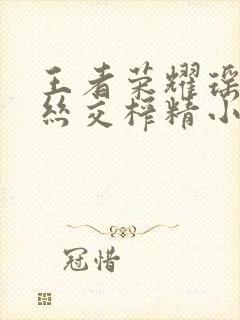 王者荣耀瑶
丝交榨精小
冠惜